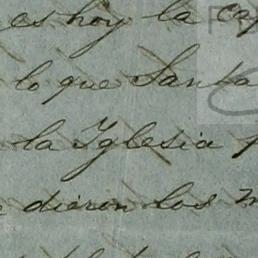 es hoy la
lo que Santa
la Iglesia
dieron los